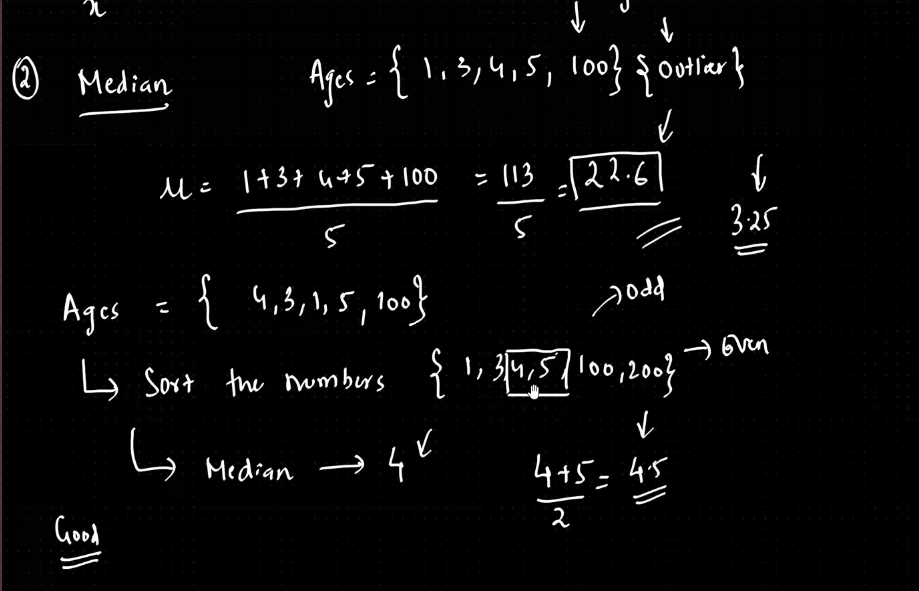 x
② Median Ages = { 1, 3, 4, 5, 100} {Outlier}
μ = 1+3+4+5+100 / 5 = 113 / 5 = 22.6
3.25
Ages = { 4, 3, 1, 5, 100}
→ Odd
↳ Sort the numbers { 1, 3, 4, 5, 100, 200} → Even
↳ Median → 4 ✓
4+5 / 2 = 4.5
Good